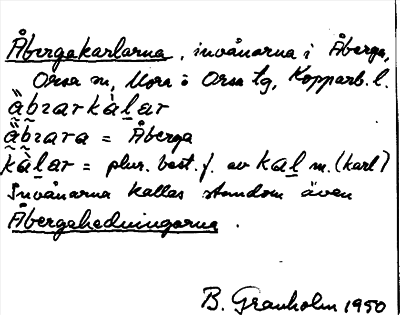 Åbergakarlarna, invånarna i Åberga,
Orsa sn, Mora o Orsa tg, Kopparb. l.
ä̀bɪarkàl̲ar
ä̀bɪara = Åberga
kàl̲ar = plur. best. f. av kal̲ m. (karl)
Invånarna kallas stundom även
Åbergahedningarna.
B. Granholm 1950